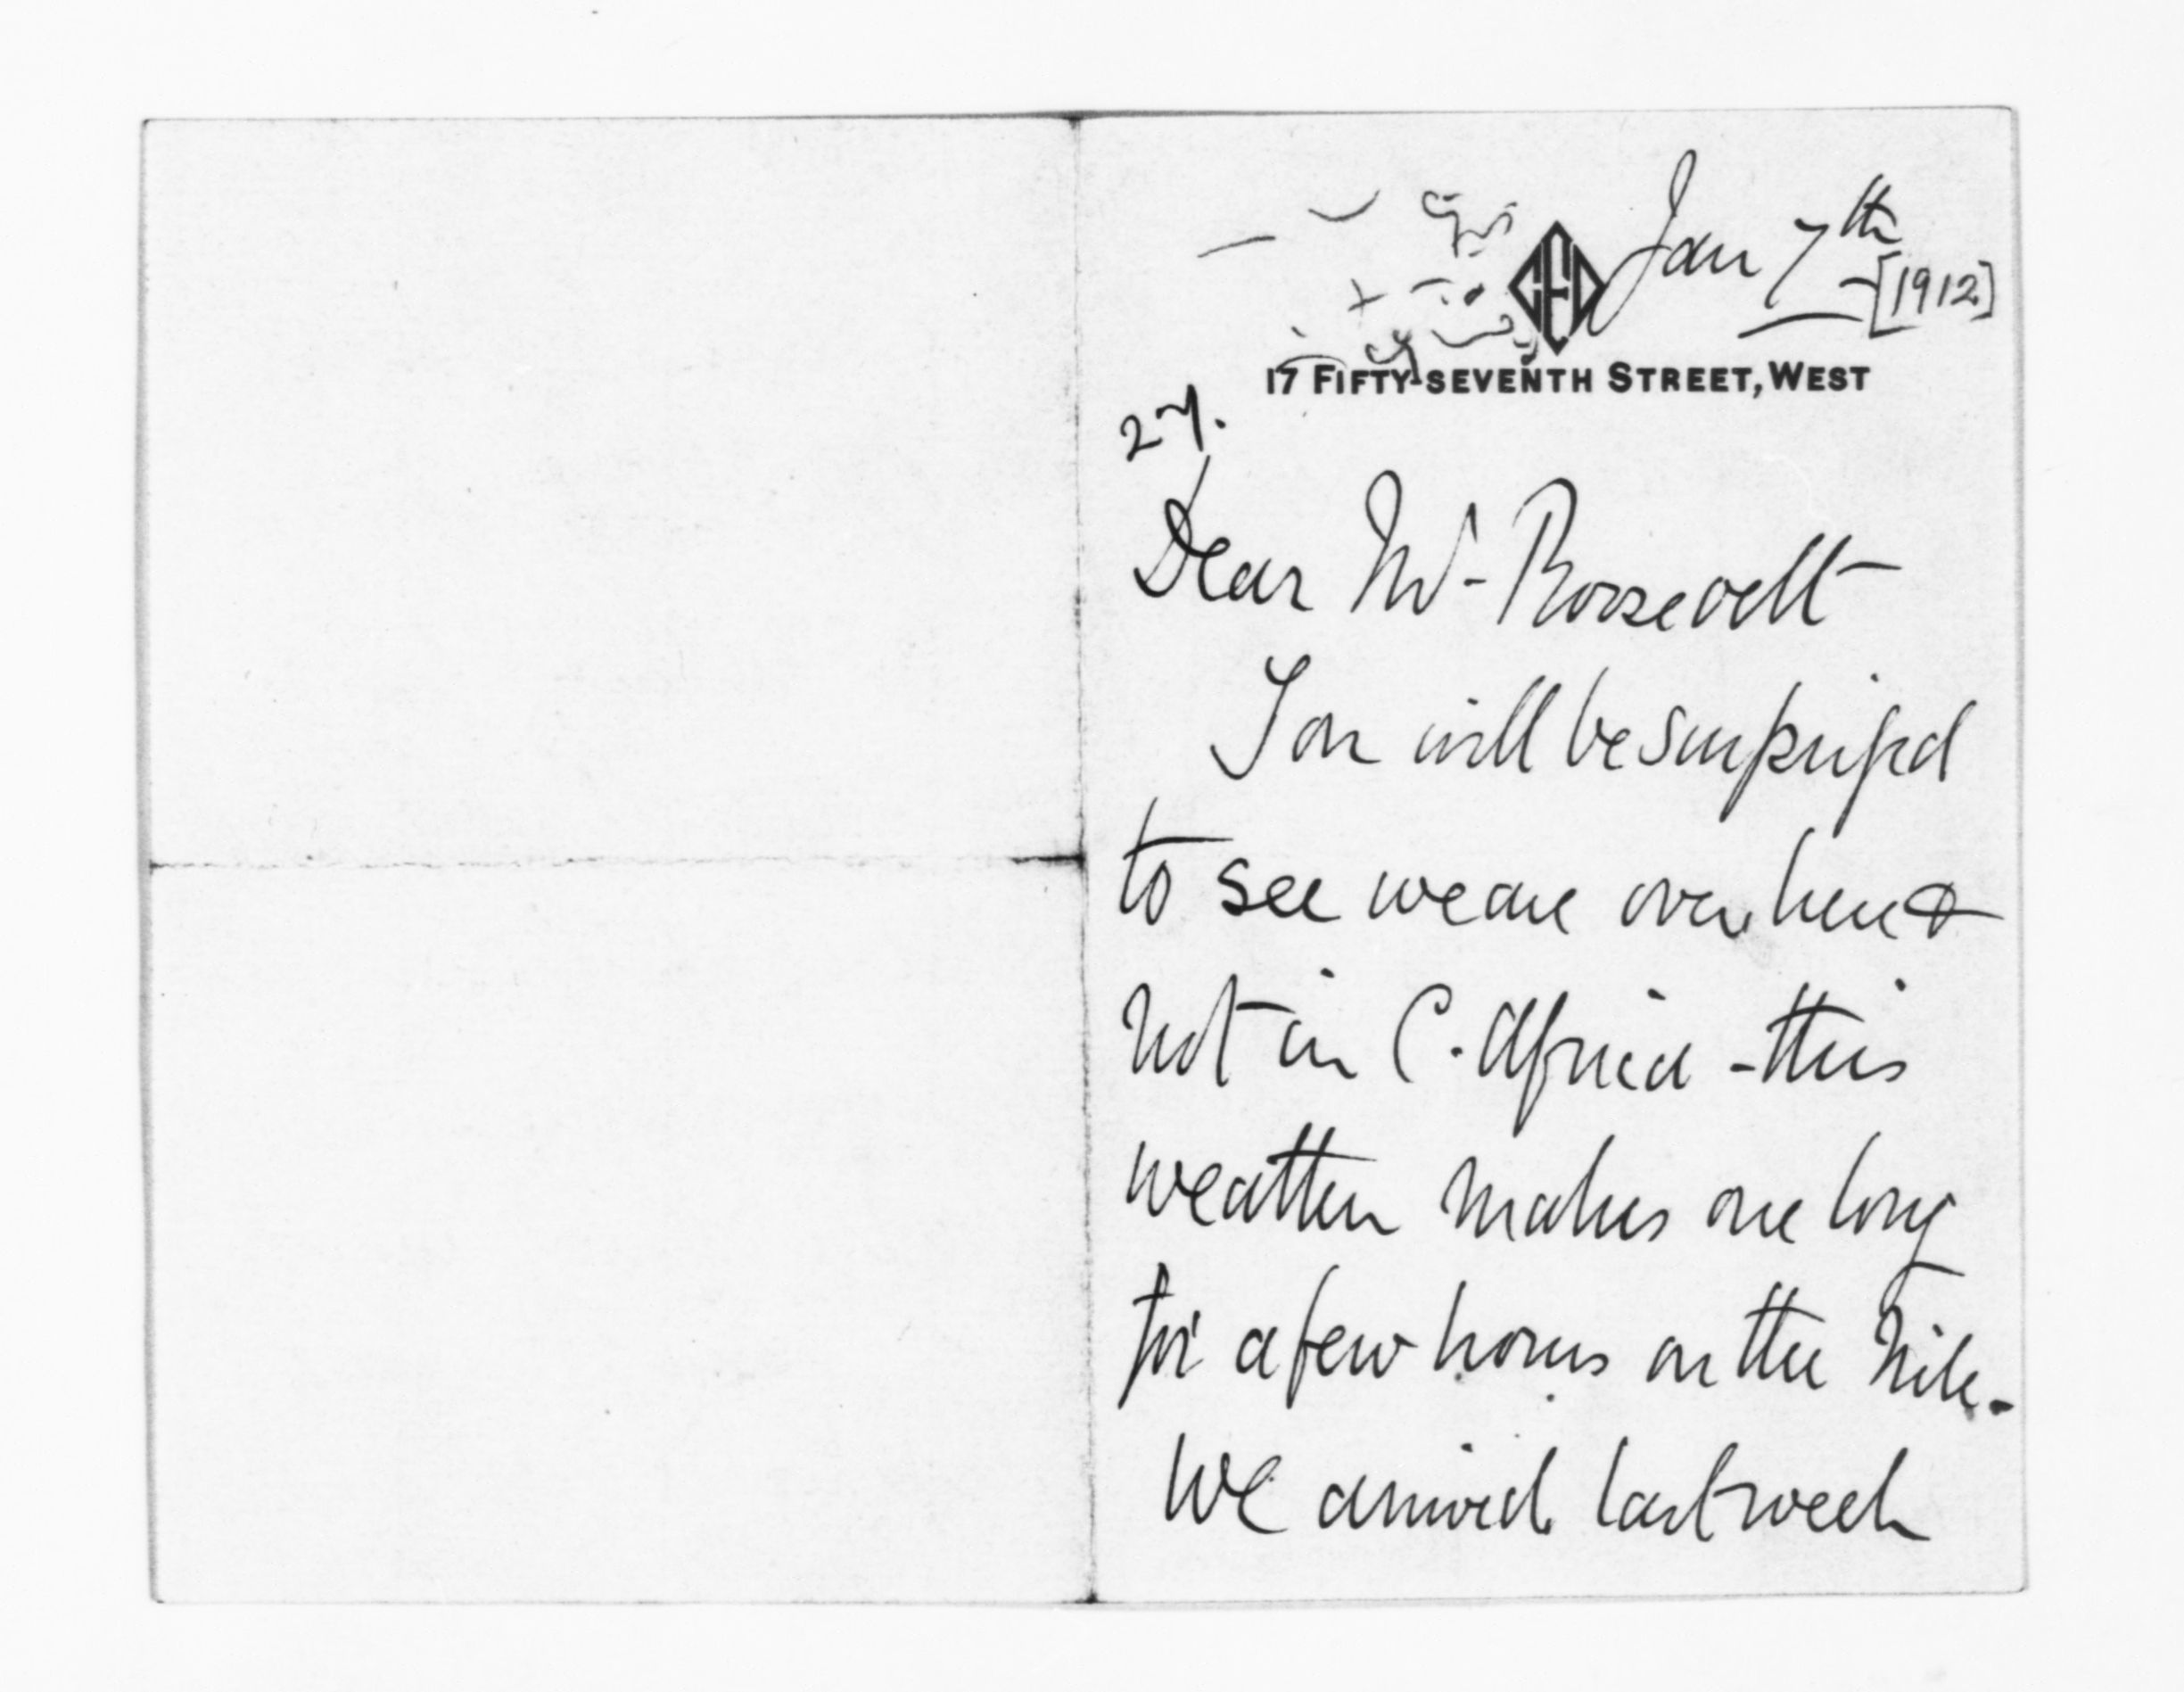 Jan 7th
[1912]
CED
17 FIFTY-SEVENTH STREET, WEST
Dear Mr- Roosevelt
You will be surprised
to see we are over here &
not in C. Africa - this
weather makes one long
for a few hours on the Nile.
We arrived last week